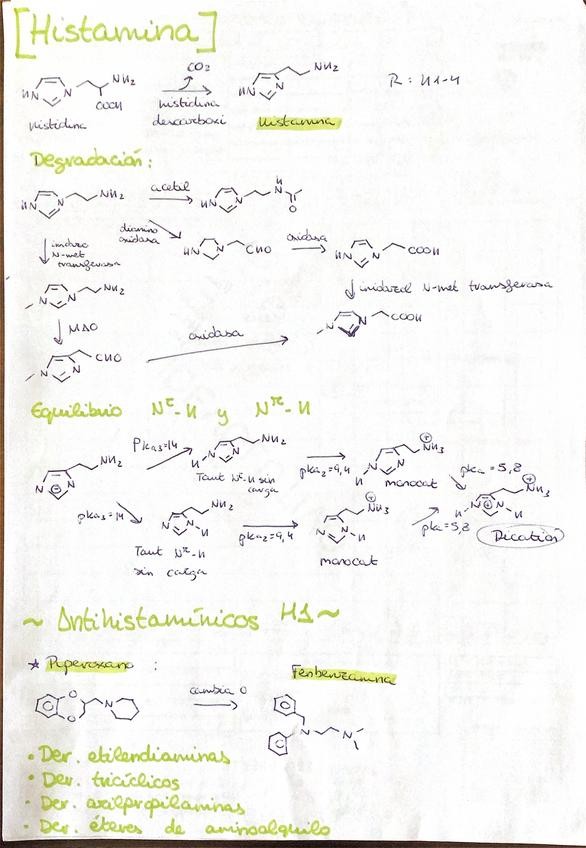 [Histamina]
CO2
NH2
COOH
HN
N
histidina
histidina
descarboxi
NH2
HN
N
Histamina
R: H1-4
Degradación:
HN
N
NH2
acetal
HN
N
H
N
O
diamino
oxidasa
HN
N
CHO
oxidasa
HN
N
COOH
imidazo
N-met
transferasa
imidazol N-met transferasa
N
N
NH2
N
N
COOH
MAO
oxidasa
N
N
CHO
Equilibrio Nτ-H y Nπ-H
N
N
NH2
Pka3=14
N
N
H
NH2
Taut Nτ-H sin
carga
pka2=9,4
N
N
H
NH3
+
monocat
pka=5,8
pka3=14
N
N-H
NH2
Taut Nπ-H
sin carga
pka2=9,4
N
N-H
NH3
+
monocat
pka=5,8
N
N
H
H
NH3
+
Dication
~ Antihistamínicos H1 ~
* Piperoxano :
Fenbenzamina
O
O
N
cambia O
N
N
• Der. etilendiaminas
• Der. tricíclicos
• Der. arilpropilaminas
• Der. éteres de aminoalquilo